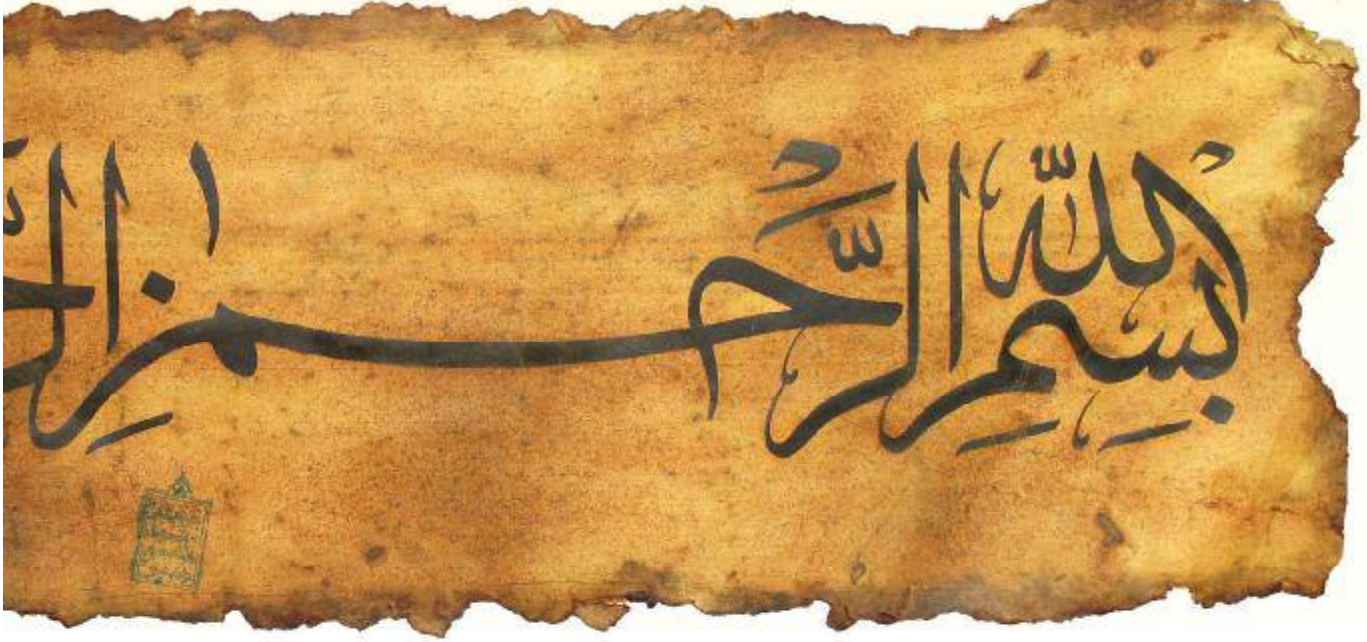 بِسْمِ اللّٰهِ الرَّحْمٰنِ